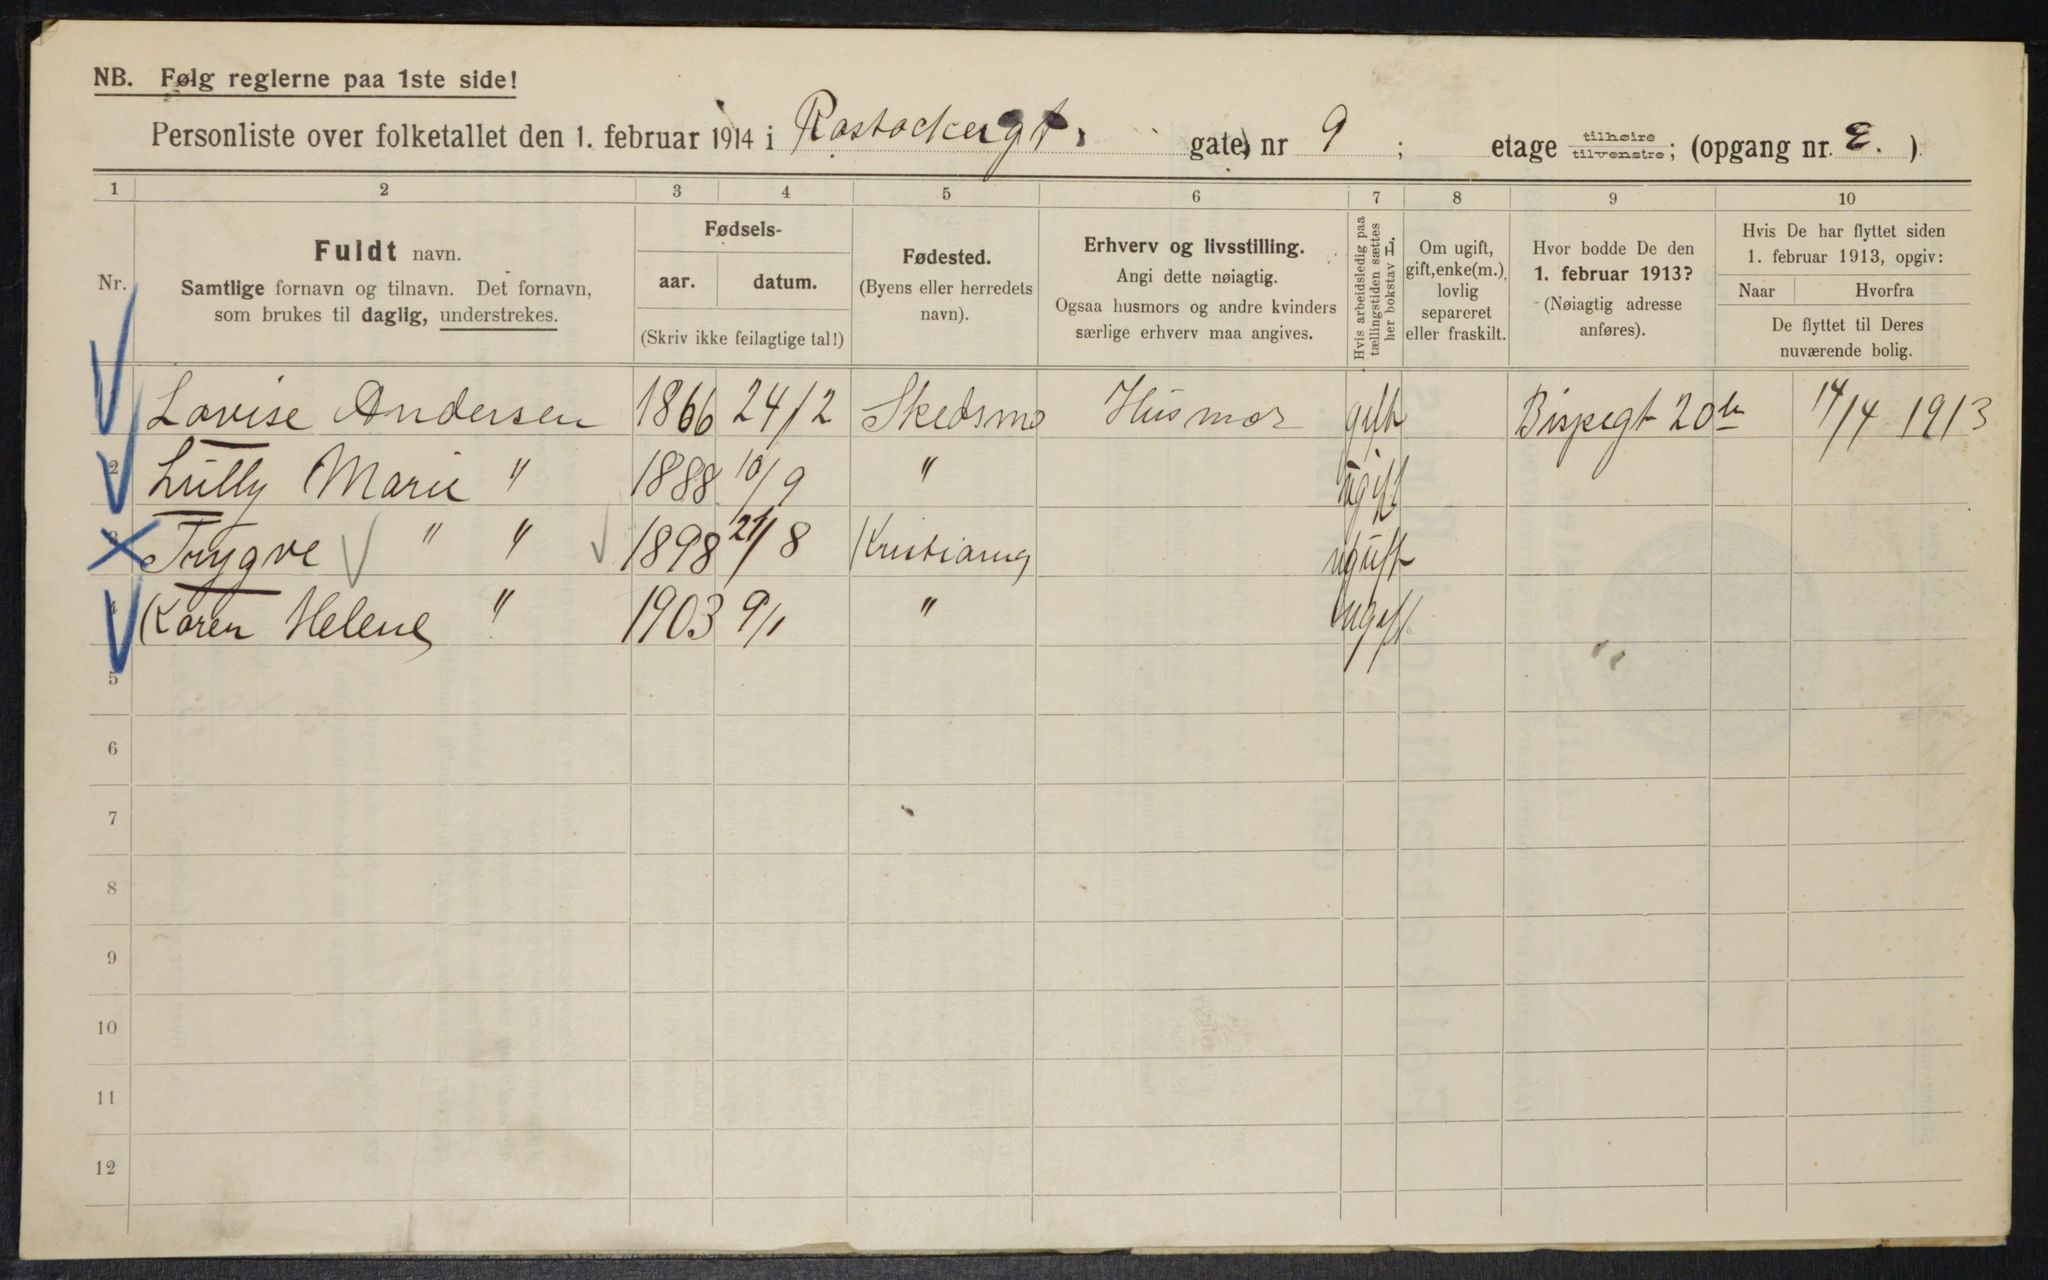 NB. Følg reglerne paa 1ste side!
Personliste over folketallet den 1. februar 1914 i Rostockergt. gate) nr 9 ; etage tilhøire/tilvenstre; (opgang nr. E. )
1 2 3 4 5 6 7 8 9 10
Nr.
Fuldt navn.
Samtlige fornavn og tilnavn. Det fornavn,
som brukes til daglig, understrekes.
Fødsels-
aar. datum.
(Skriv ikke feilagtige tal!)
Fødested.
(Byens eller herredets
navn).
Erhverv og livsstilling.
Angi dette nøiagtig.
Ogsaa husmors og andre kvinders
særlige erhverv maa angives.
Hvis arbeidsledig paa
tællingstiden sættes
her bokstav L.
Om ugift,
gift, enke(m.),
lovlig
separeret
eller fraskilt.
Hvor bodde De den
1. februar 1913?
(Nøiagtig adresse
anføres).
Hvis De har flyttet siden
1. februar 1913, opgiv:
Naar Hvorfra
De flyttet til Deres
nuværende bolig.
Lovise Andersen 1866 24/2 Skedsmo Husmor gift Bispegt 20 14/4 1913
2 Lully Marie " 1888 10/9 " ugift
3 Trygve " " 1898 21/8 Kristiania ugift
4 Karen Helene " 1903 9/1 " ugift
5
6
7
8
9
10
11
12